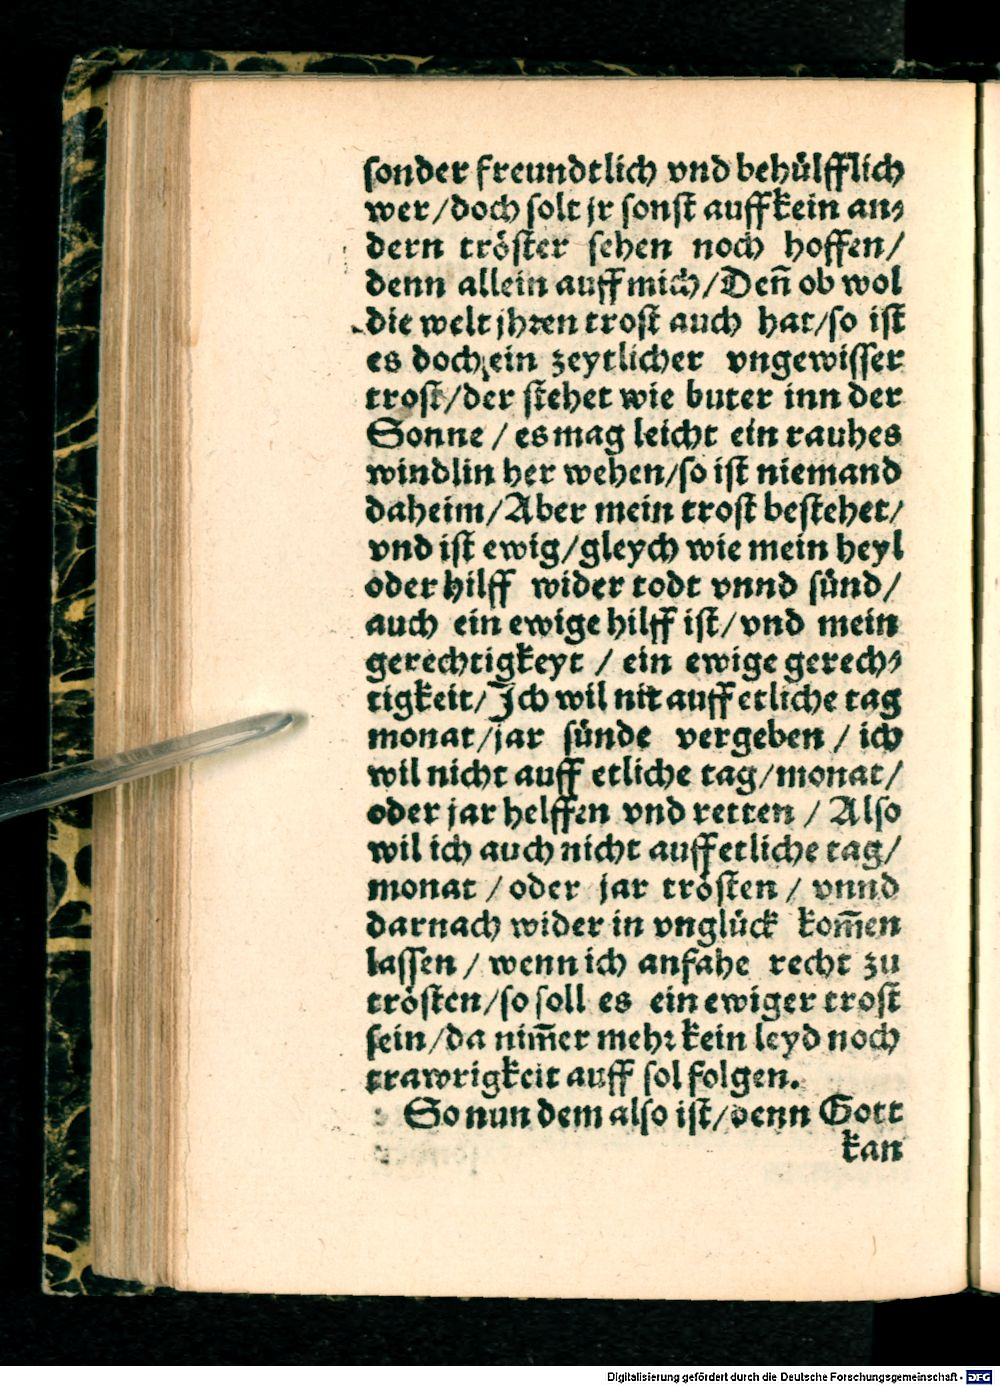 sonder freundtlich vnd behülfflich
wer/doch solt jr sonst auff kein an⸗
dern tröster sehen noch hoffen/
denn allein auff mich/Deñ ob wol
die welt jhren trost auch hat/so ist
es doch ein zeytlicher vngewisser
trost/der stehet wie buter inn der
Sonne / es mag leicht ein rauhes
windlin her wehen/so ist niemand
daheim/Aber mein trost bestehet/
vnd ist ewig/gleych wie mein heyl
oder hilff wider todt vnnd sünd/
auch ein ewige hilff ist/vnd mein
gerechtigkeyt / ein ewige gerech⸗
tigkeit/Ich wil nit auff etliche tag
monat/jar sünde vergeben / ich
wil nicht auff etliche tag/monat/
oder jar helffen vnd retten / Also
wil ich auch nicht auff etliche tag/
monat / oder jar trösten / vnnd
darnach wider in vnglück kom̃en
lassen / wenn ich anfahe recht zu
trösten/so soll es ein ewiger trost
sein/da nim̃er mehr kein leyd noch
trawrigkeit auff sol folgen.
So nun dem also ist/denn Gott
kan
Digitalisierung gefördert durch die Deutsche Forschungsgemeinschaft - DFG